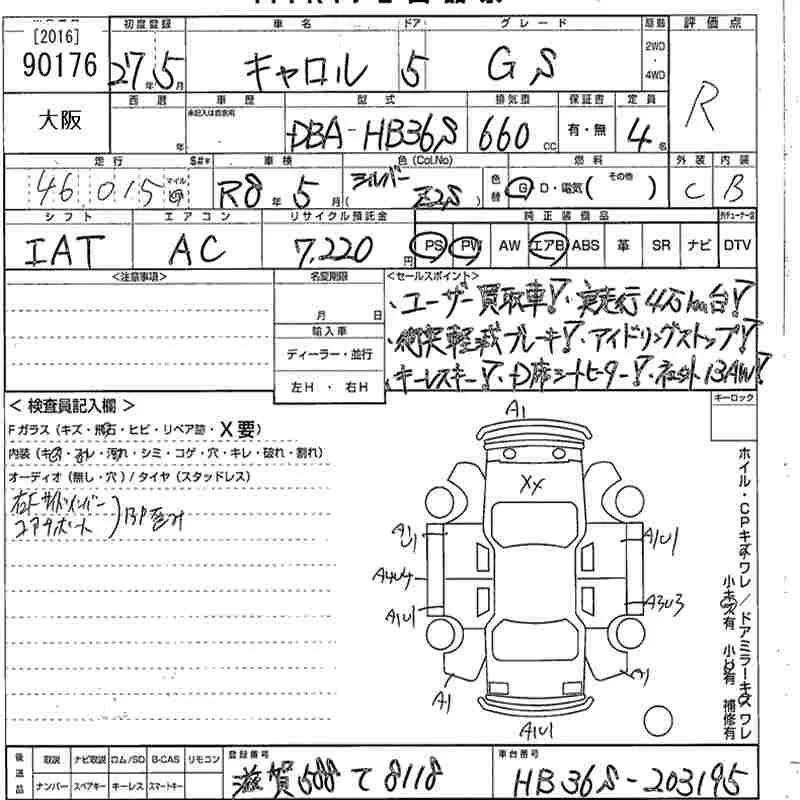 [2016]
90176
初度登録 車名 ドア グレード 原動 評価点
27年5月 キャロル 5 GS 2WD・4WD R
大阪
西暦 年 車歴 未記入は自家用 型式 排気量 保証書 定員
DBA-HB36S 660cc 有・無 4名
走行 S#* 車検 色(Col.No) 色替 燃料 外装 内装
46,015 マイル R8年5月 シルバー (Z2S) G D・電気( その他 ) C B
シフト エアコン リサイクル預託金 純正装備品
IAT AC 7,220円 PS PW AW エアB ABS 革 SR ナビ DTV
<注意事項> 名変期限 <セールスポイント>
月 日
輸入車
ディーラー・並行
左H・右H
・ユーザー買取車!・実走行4万km台!
・衝突軽減ブレーキ!・アイドリングストップ!
・キーレスキー!・D席シートヒーター!・社外13AW!
キーロック
<検査員記入欄>
Fガラス(キズ・飛石・ヒビ・リペア跡・X要)
内装(キズ・スレ・汚れ・シミ・コゲ・穴・キレ・破れ・割れ)
オーディオ(無し・穴)/タイヤ(スタッドレス)
右Fサイドメンバー
コアサポート
A1
XX
A1U1
A4U4 A3U3
A1U1
A1
A1U1
ホイル・CPキズワレ/ドアミラーキズワレ
小キズ有 小凹有 補修有
後送品 取説 ナビ取説 ロム/SD B-CAS リモコン
ナンバー スペアキー キーレス スマートキー
登録番号 滋賀 588 て 8118
車台番号 HB36S-203195